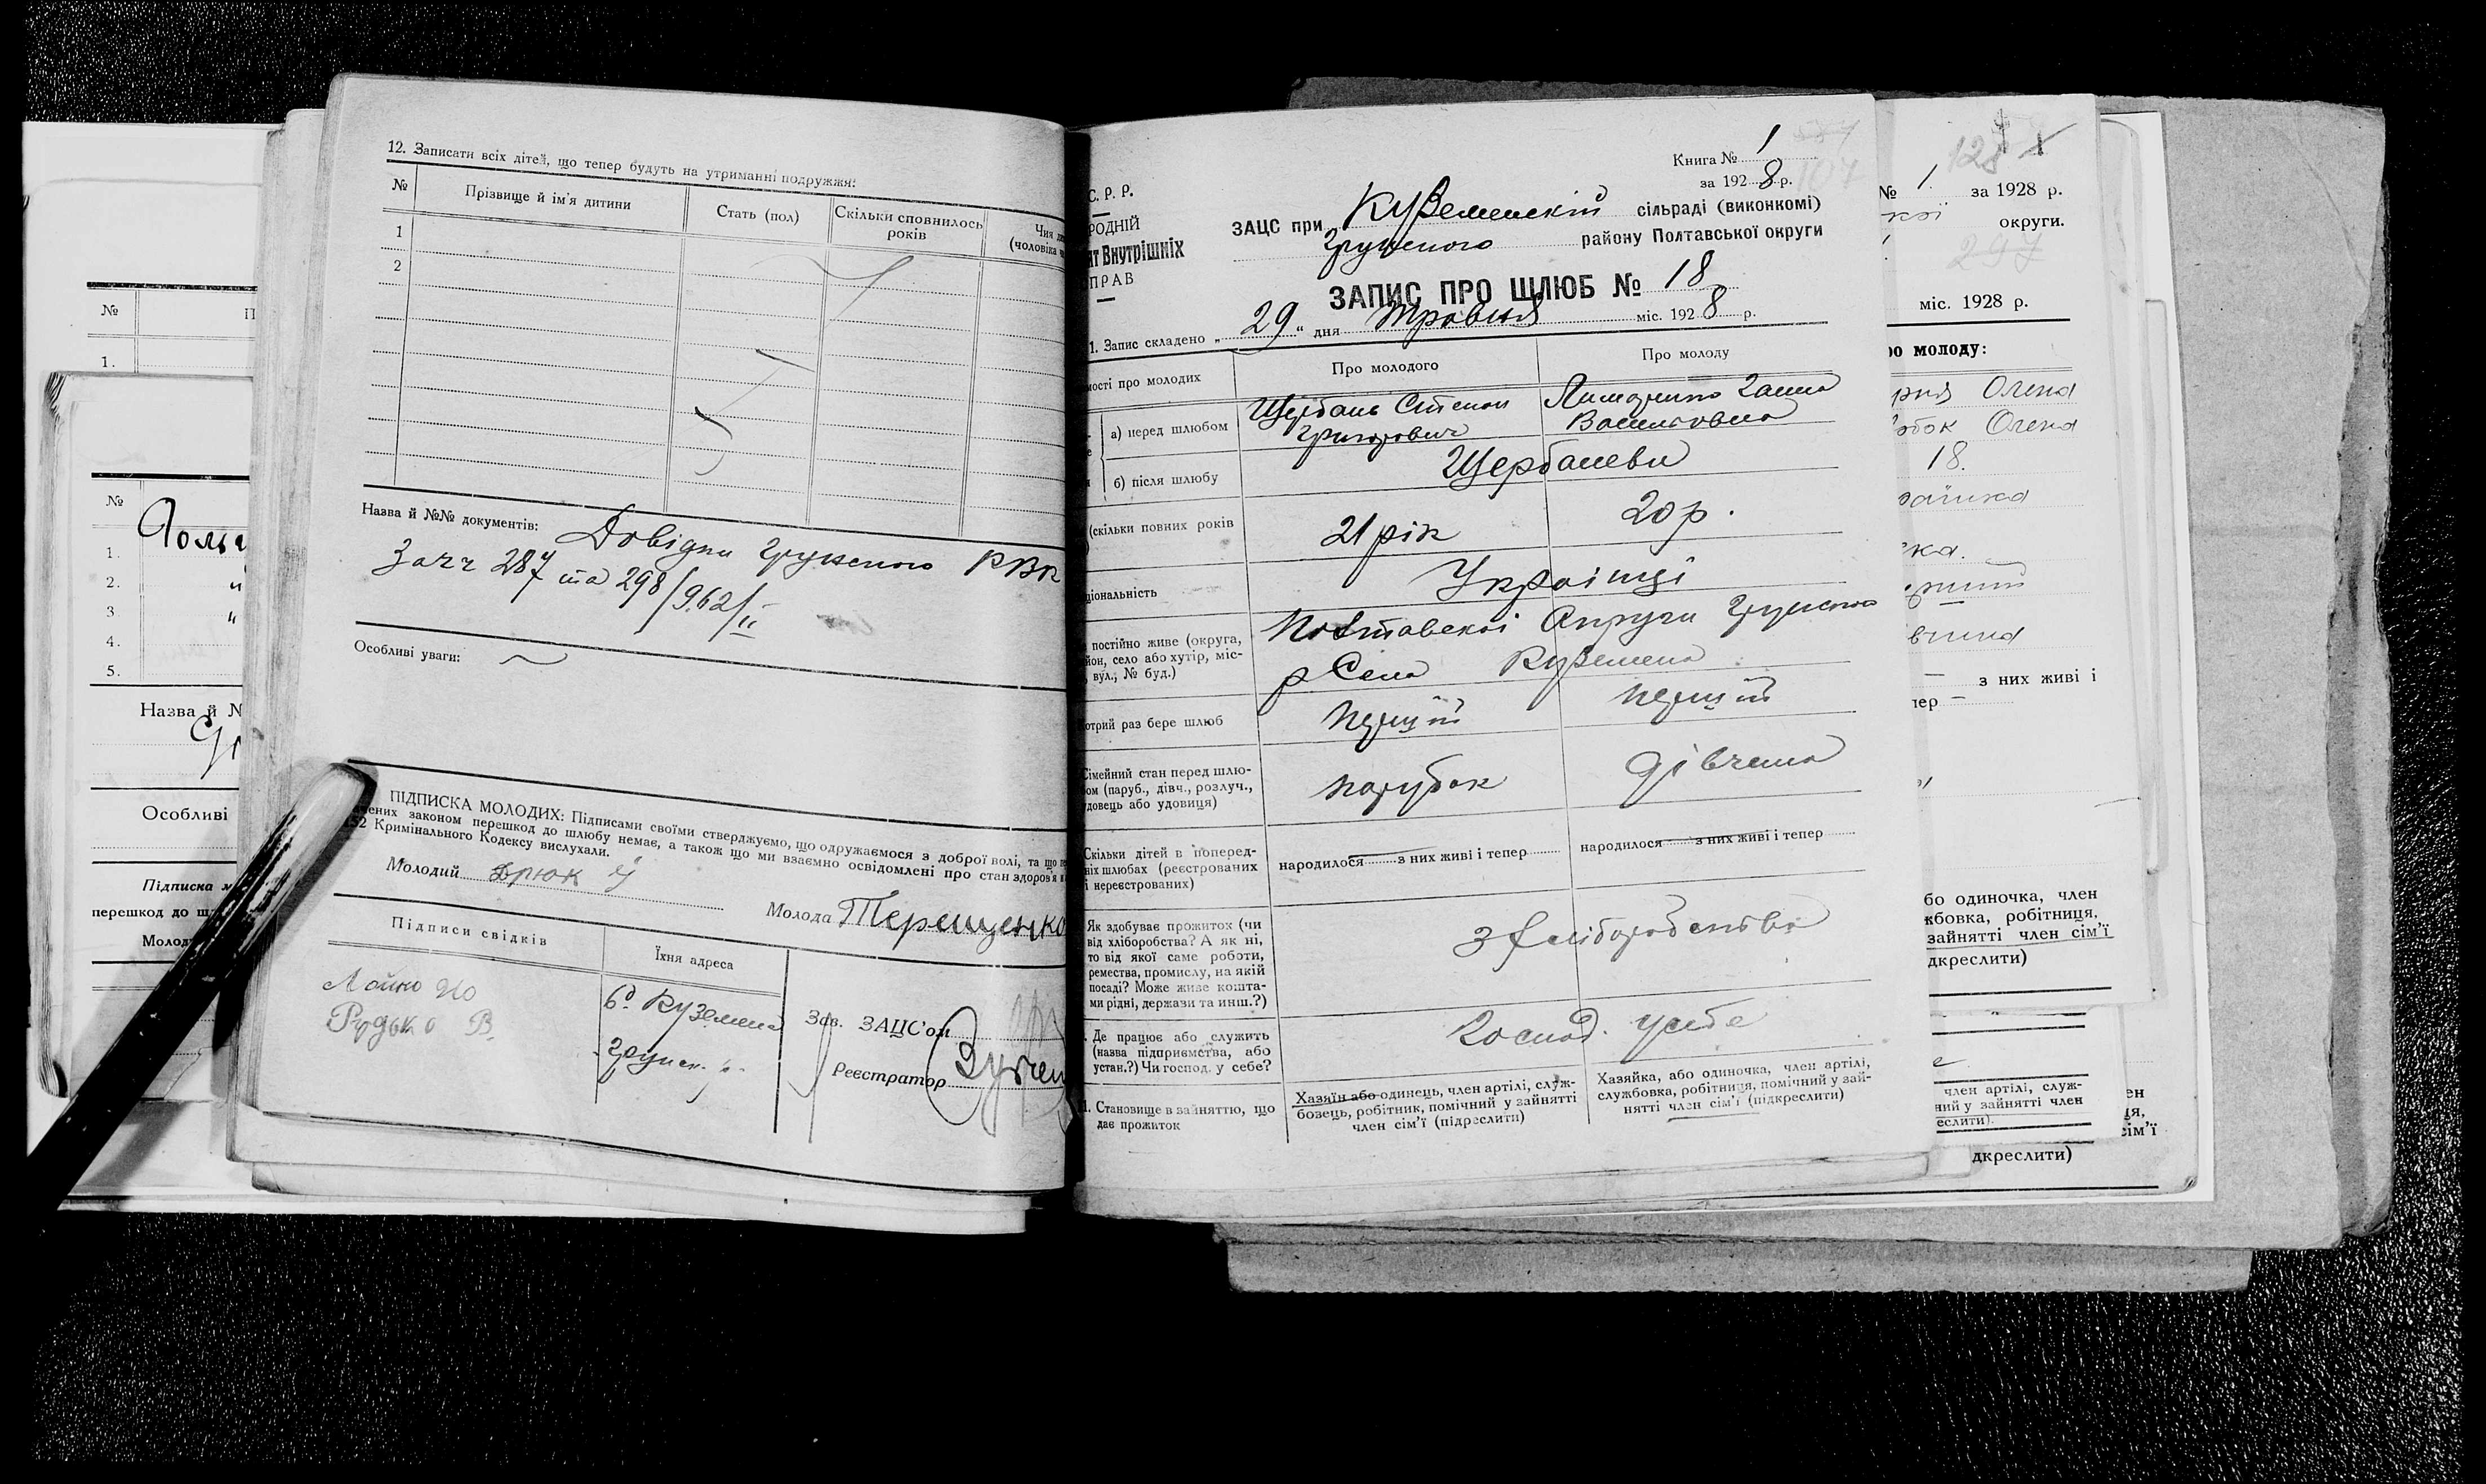 12. Записати всіх дітей, що тепер будуть на утриманні подружжя:
№ Прізвище й ім'я дитини Стать (пол) Скільки сповнилось років Чия
(чоловіка
1
2
Назва й №№ документів: Довідки Грунського РВК
За чч 287 та 298/962/II
Особливі уваги:
ПІДПИСКА МОЛОДИХ: Підписами своїми стверджуємо, що одружаємося з доброї волі, та що
законом перешкод до шлюбу немає, а також що ми взаємно освідомлені про стан здоров'я
Кримінального Кодексу вислухали.
Молодий Дрюк
Молода Терещенко
Підписи свідків Їхня адреса
Рудько В. Куземена
Зав. ЗАЦС'ом
Грунськ. р.
Реєстратор
№
1.
№
1.
2. "
3 "
4.
5.
Назва й №
Особливі
Підписка
перешкод до
С. Р. Р.
Внутрішніх
ПРАВ
Книга № 1
за 1928 р.
ЗАЦС при Куземенскій сільраді (виконкомі)
Грунського району Полтавської округи
ЗАПИС ПРО ШЛЮБ № 18
1. Запис складено „29" дня Травня міс. 1928 р.
про молодих Про молодого Про молоду
а) перед шлюбом Щербань Степан Григорович Ганна Васильовна
б) після шлюбу Щербаневи
(скільки повних років 21 рік 20 р.
Українці
постійно живе (округа, село або хутір, міс- вул., № буд.) Полтавської Округи Грунського
р Села Куземена
раз бере шлюб перший перший
Сімейний стан перед шлю- бом (паруб., дівч., розлуч., удовець або удовиця) парубок дівчина
Скільки дітей в поперед- ніх шлюбах (реєстрованих і нереєстрованих) народилося з них живі і тепер народилося з них живі і тепер
Як здобуває прожиток (чи від хліборобства? А як ні, то від якої саме роботи, ремества, промислу, на якій посаді? Може живе кошта- ми рідні, держави та инш.?) З хліборобства
Де працює або служить (назва підприємства, або устан.?) Чи господ. у себе? Господ. у себе
Становище в зайняттю, що дає прожиток Хазяїн або одинець, член артілі, служ- бовець, робітник, помічний у зайнятті член сім'ї (підреслити) Хазяйка, або одиночка, член артілі, службовка, робітниця, помічний у зай- нятті член сім'ї (підкреслити)
№ 1. за 1928 р.
округи.
297
міс. 1928 р.
молоду:
Олена
Олена
18.
з них живі і
одиночка, член
робітниця,
зайнятті член сім'ї
член артілі, служ-
у зайнятті член
сім'ї